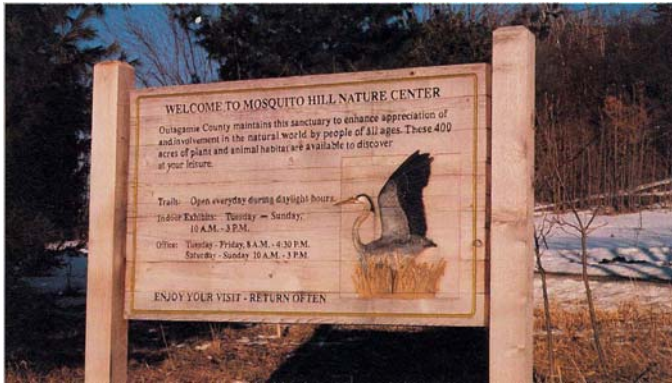 WELCOME TO MOSQUITO HILL NATURE CENTER
Outagamie County maintains this sanctuary to enhance appreciation of
and involvement in the natural world by people of all ages. These 400
acres of plant and animal habitat are available to discover
at your leisure.
Trails: Open everyday during daylight hours.
Indoor Exhibits: Tuesday - Sunday,
10 A.M. - 3 P.M.
Office: Tuesday - Friday, 8 A.M. - 4:30 P.M.
Saturday - Sunday 10 A.M. - 3 P.M.
ENJOY YOUR VISIT - RETURN OFTEN